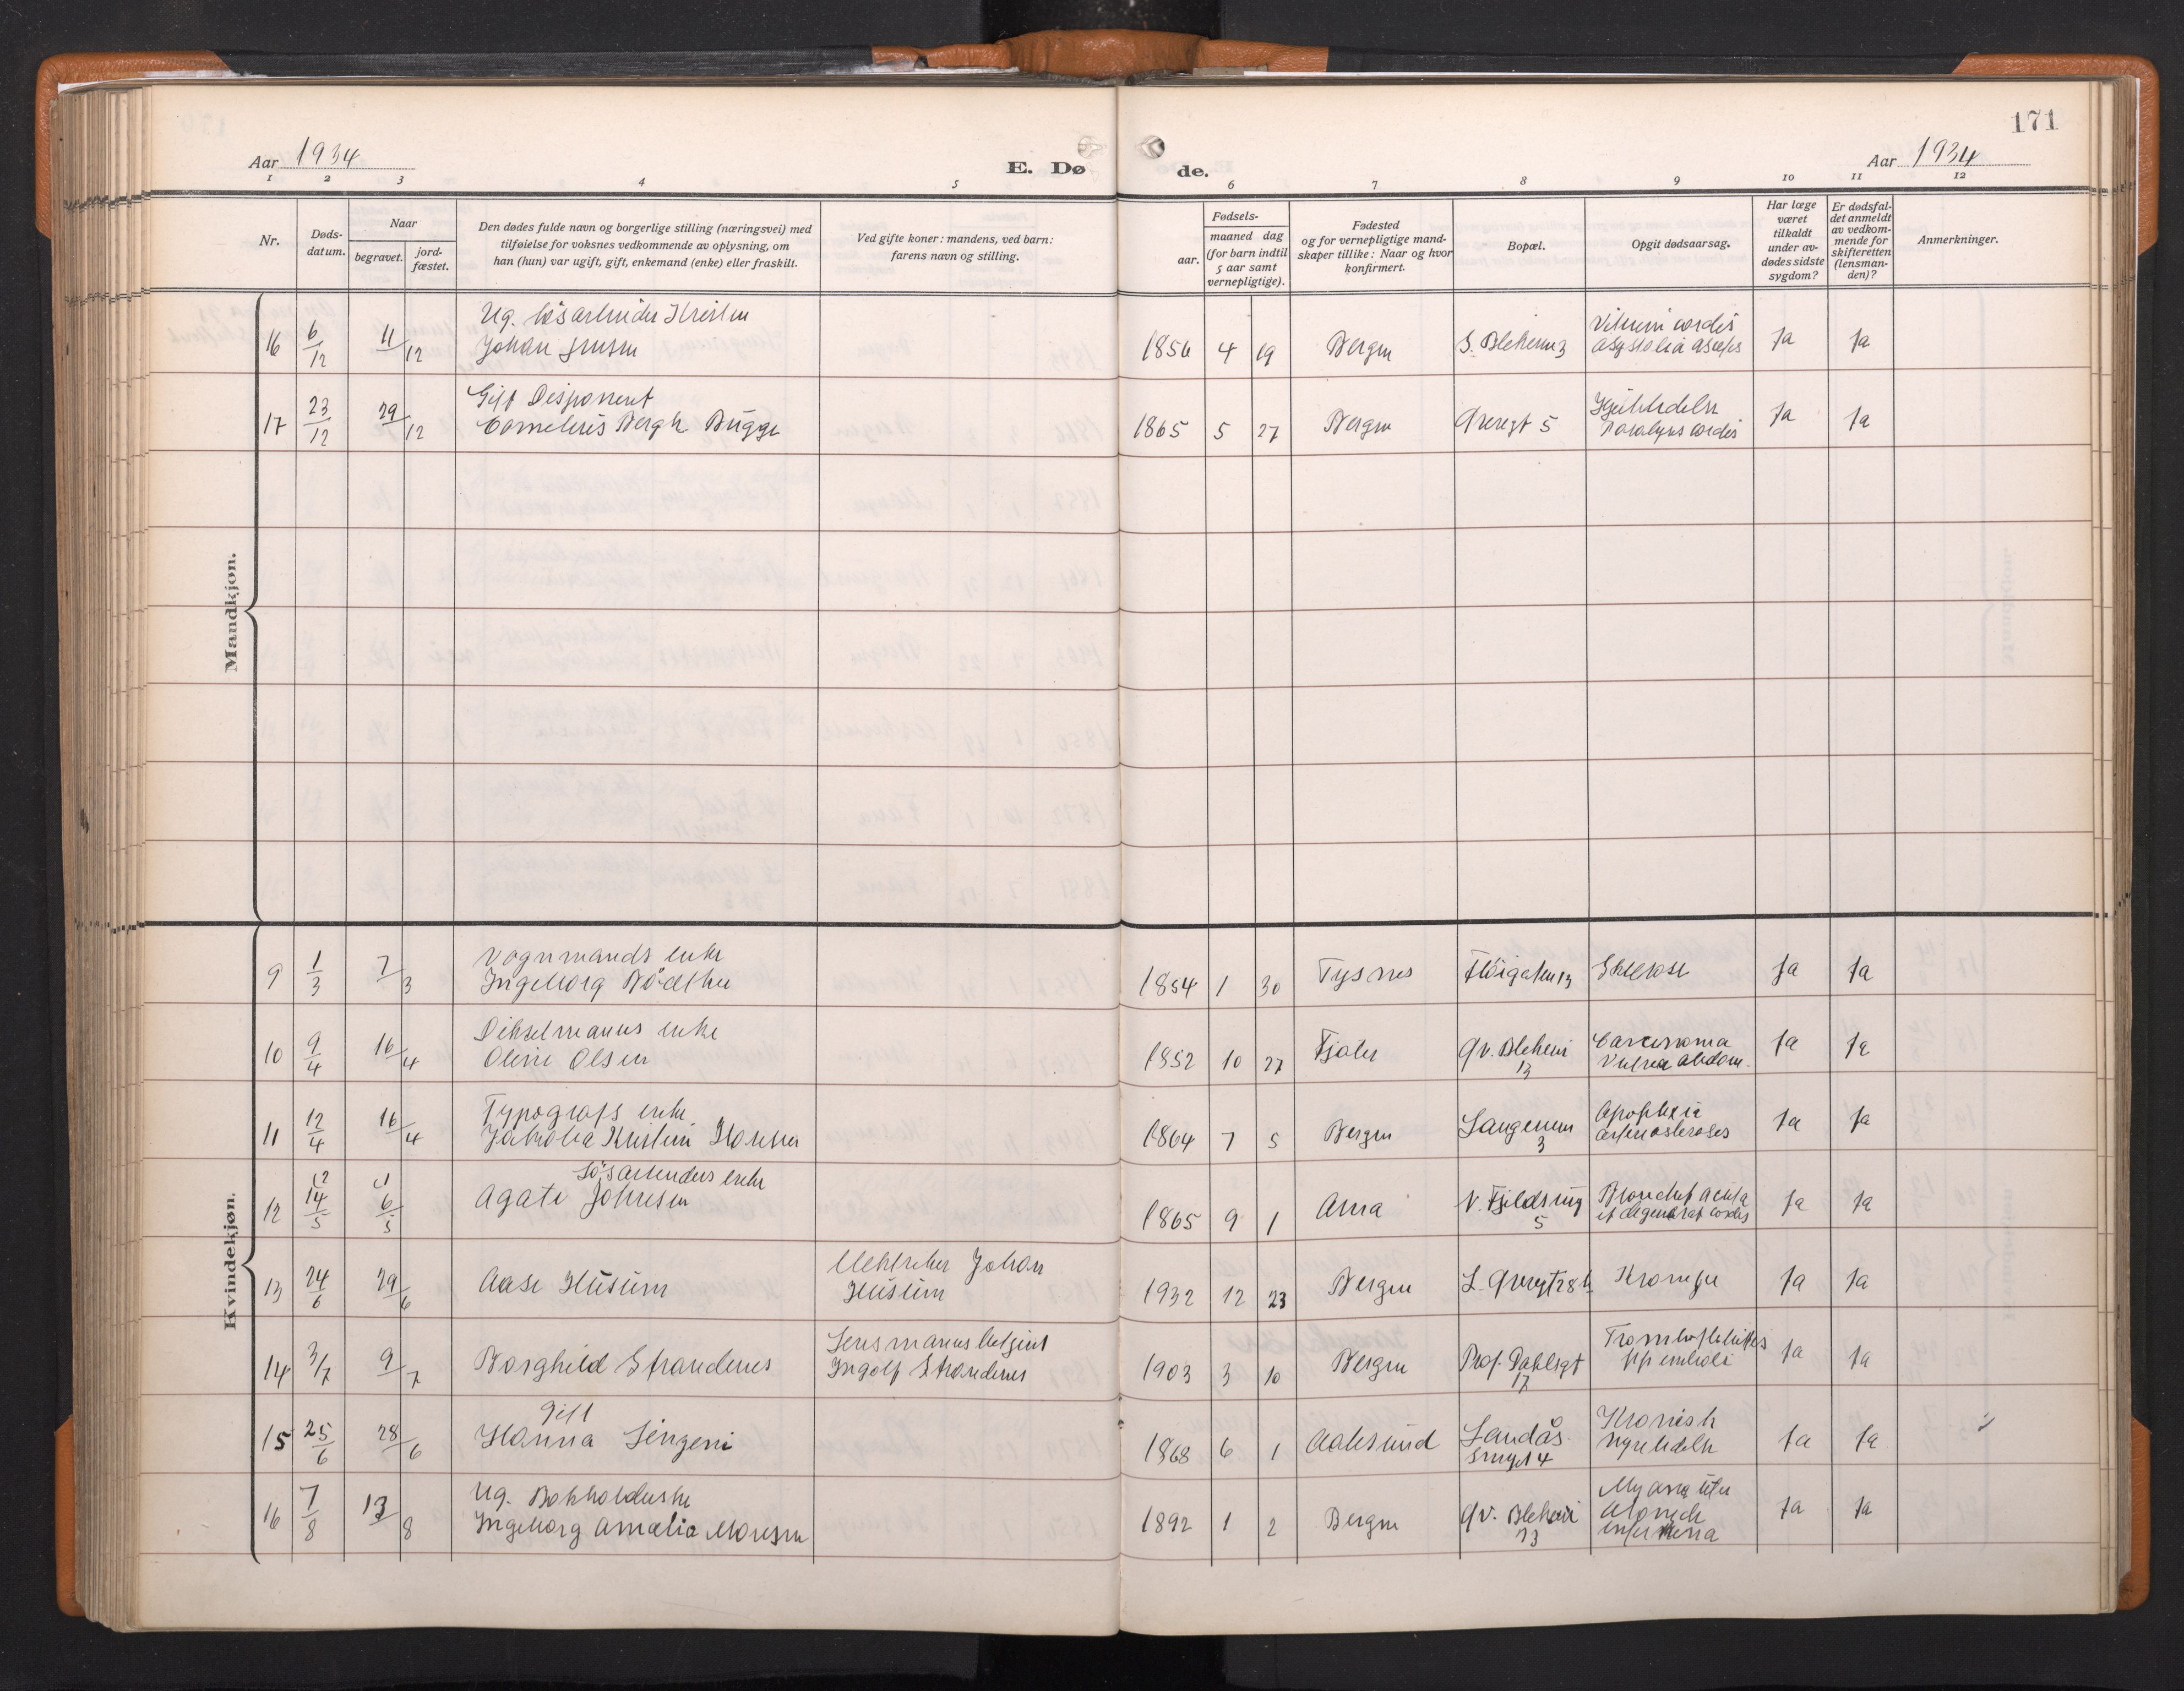 171
Aar 1934
E. Dø
de.
Aar 1934
1 2 3 4 5 6 7 8 9 10 11 12
Nr.
Døds-
datum.
Naar
begravet.
jord-
fæstet.
Den dødes fulde navn og borgerlige stilling (næringsvei) med
tilføielse for voksnes vedkommende av oplysning, om
han (hun) var ugift, gift, enkemand (enke) eller fraskilt.
Ved gifte koner: mandens, ved barn:
farens navn og stilling.
Fødsels-
aar.
maaned dag
(for barn indtil
5 aar samt
vernepligtige).
Fødested
og for vernepligtige mand-
skaper tillike: Naar og hvor
konfirmert.
Bopæl.
Opgit dødsaarsag.
Har læge
været
tilkaldt
under av-
dødes sidste
sygdom?
Er dødsfal-
det anmeldt
av vedkom-
mende for
skifteretten
(lensman-
den)?
Anmerkninger.
Mandkjøn.
Ug. løsarbeider Kristen
16 6/12 11/12 Johan Jensen 1856 4 19 Bergen S. Blekevei 3 Vitium cordis
asystolia ascites Ja Ja
Gift Disponent
17 23/12 29/12 Cornelius Bergh Brügge 1865 5 27 Bergen Øvregt 5 Hjertelidelse
Paralysis cordis Ja Ja
Kvindekjøn.
Vognmands enke
9 1/3 7/3 Ingeborg 1854 1 30 Tysnes Fløigaten 13 Sklerose Ja Ja
enke
10 9/4 16/4 Oline Olsen 1852 10 27 Fjaler Øv. Blekevei
13 Carcinoma
Vulvea abdom. Ja Ja
Typografs enke
11 12/4 16/4 Jakobia Kristine Hansen 1864 7 5 Bergen
3 Apoplexia
arteriosklerosis Ja Ja
Løsarbeiders enke
12 14/5 6/5 Agate Johnsen 1865 9 1 Arna N. Fjeldsmug
5 Bronchit acuta
et degenerat cordis Ja Ja
13 24/6 29/6 Aase Husum Johan
Husum 1932 12 23 Bergen L. Øvregt 28 b Ja Ja
Lensmands betjent
14 3/7 9/7 Borghild Strandenes Ingolf Strandenes 1903 3 10 Bergen Prof. Dahlsgt
17 emboli Ja Ja
Gift
15 25/6 28/6 Hanna 1868 6 1 Aalesund Landås
4 Kronisk
nyrelidelse Ja Ja
Ug. Bokholderske
16 7/8 13/8 Ingeborg Amalie Monsen 1892 1 2 Bergen Øv. Blekevei
13 Ja Ja